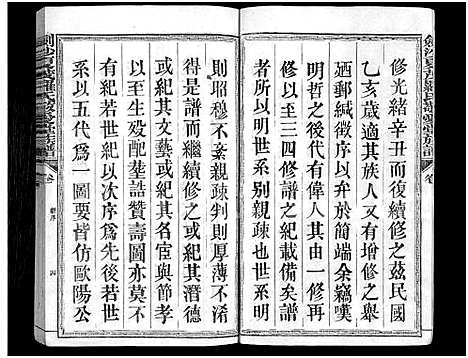 修光緒辛丑而後續修之茲民國
乙亥歲適其族人又有增修之舉
廼郵緘徵序以弁於簡端余竊嘆
明哲之後代有偉人其由一修再
修以至三四修紀載備矣譜
者所以明世系別親疎也世系明
則昭穆不紊親疎判則厚薄不淆
得是譜而繼續修之或紀其潛德
或紀其文藝或紀其名宦與節孝
以至生歿配塟誥贊壽圖亦莫不
有紀若世紀以次序為先後若世
系以五代為一圖要皆仿歐陽公
卷
新序
四